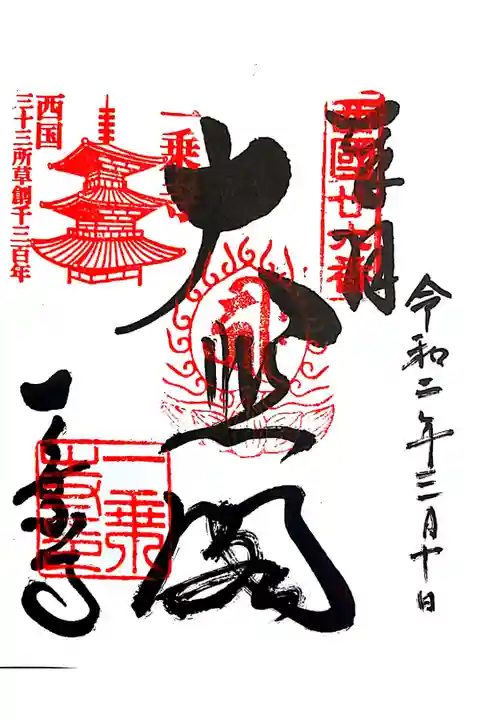 令和二年三月十日
奉拝
西國廿六番
大悲閣
一乗寺
一乗寺
西国
三十三所草創千三百年